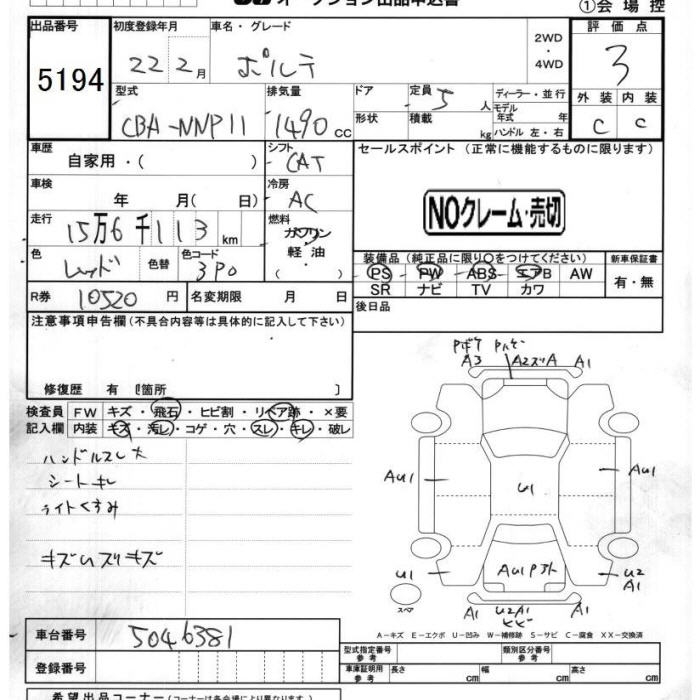 ①会場控
出品番号 5194
初度登録年月 22 2月
車名・グレード ポルテ
2WD・4WD
評価点 3
外装 C 内装 C
型式 CBA-NNP11
排気量 1490 cc
ドア形状
定員 5 人
積載 kg
ディーラー・並行
モデル年式 年
ハンドル 左・右
車歴 自家用・( )
シフト CAT
セールスポイント (正常に機能するものに限ります)
車検 年 月( 日)
冷房 AC
NOクレーム・売切
走行 15万6千113 km
燃料 ガソリン 軽油
色 レッド 色替 色コード 3P0
装備品 (純正品に限り○をつけてください) 新車保証書
PS・PW・ABS・エアB AW
SR ナビ TV カワ
有・無
R券 10520 円 名変期限 月 日
後日品
注意事項申告欄 (不具合内容等は具体的に記入して下さい)
修復歴 有 [箇所 ]
検査員記入欄
FW キズ・飛石・ヒビ割・リペア跡・×要
内装 キズ・汚レ・コゲ・穴・スレ・キレ・破レ
ハンドルスレ大
シートキレ
ライトくすみ
キズUズリキズ
A3 A2ズリA A1
AU1 U1 AU1
AU1Pヌケ
U1 U2 A1
スペア
A1 U2A1 A1
ヒビ
A-キズ E-エクボ U-凹み W-補修跡 S-サビ C-腐食 XX-交換済
車台番号 5046381
登録番号
型式指定番号 参考
類別区分番号 参考
車庫証明用 参考 長さ cm 幅 cm 高さ cm
希望出品コーナー